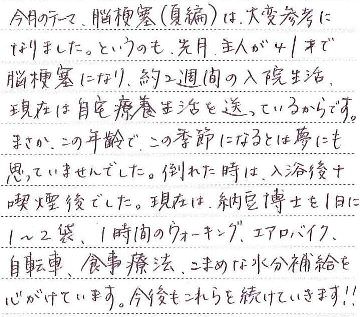 今月のテーマ、脳梗塞(夏編)は、大変参考に
なりました。というのも、先月、主人が41才で
脳梗塞になり、約2週間の入院生活、
現在は自宅療養生活を送っているからです。
まさか、この年齢で、この季節になるとは夢にも
思っていませんでした。倒れた時は、入浴後+
喫煙後でした。現在は、納豆博士を1日に
1~2袋、1時間のウォーキング、エアロバイク、
自転車、食事療法、こまめな水分補給を
心がけています。今後もこれらを続けていきます!!